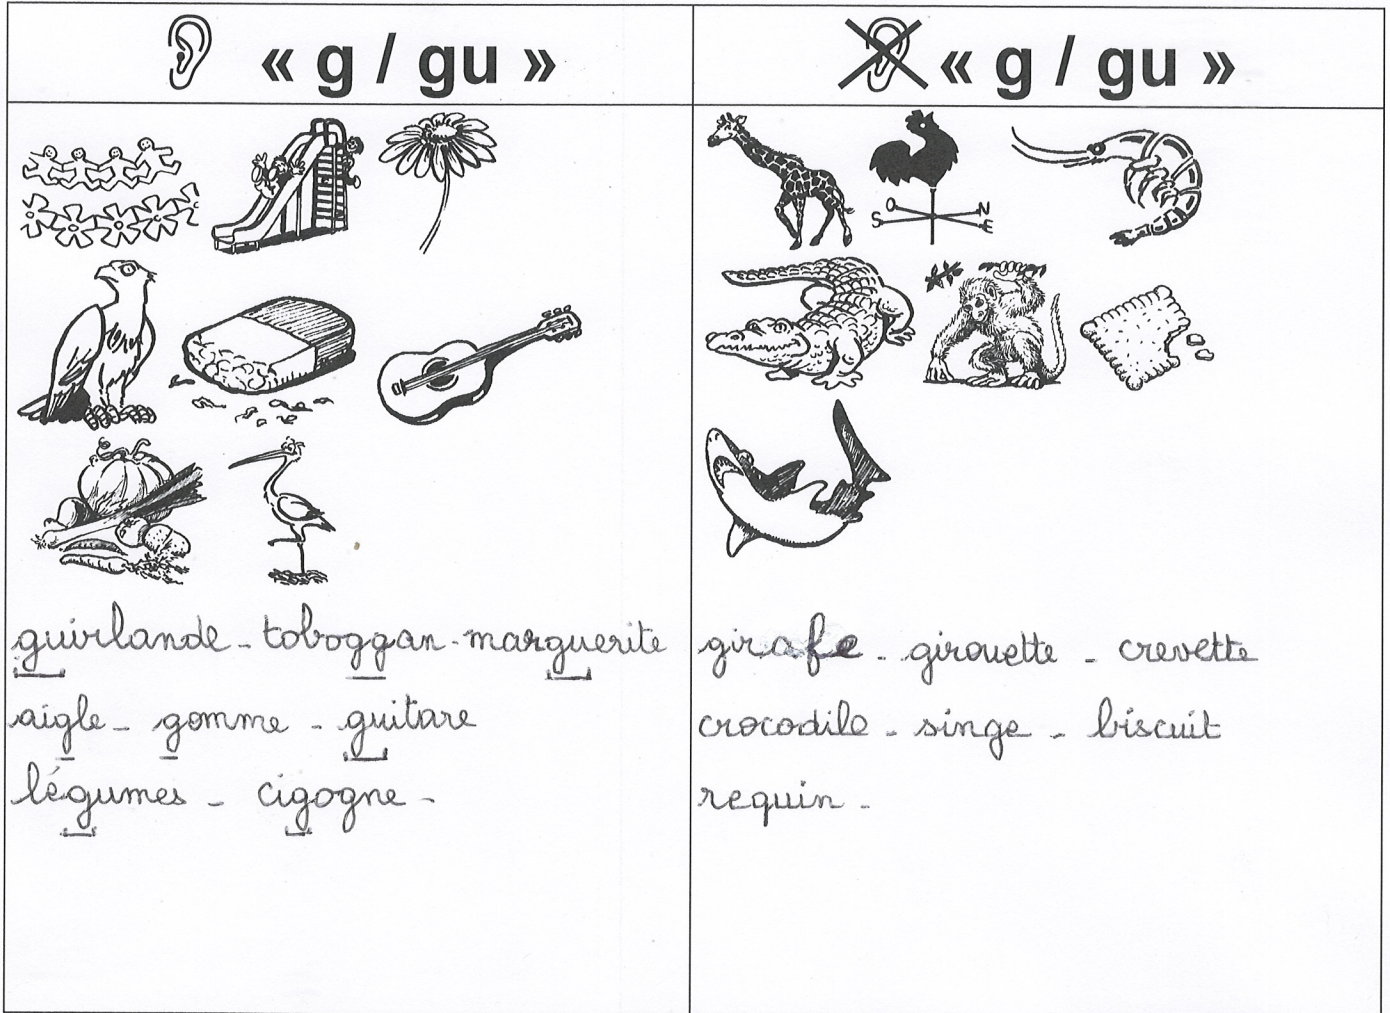 « g / gu »
« g / gu »
O N
S E
guirlande - toboggan - marguerite
aigle - gomme - guitare
légumes - cigogne -
girafe - girouette - crevette
crocodile - singe - biscuit
requin -